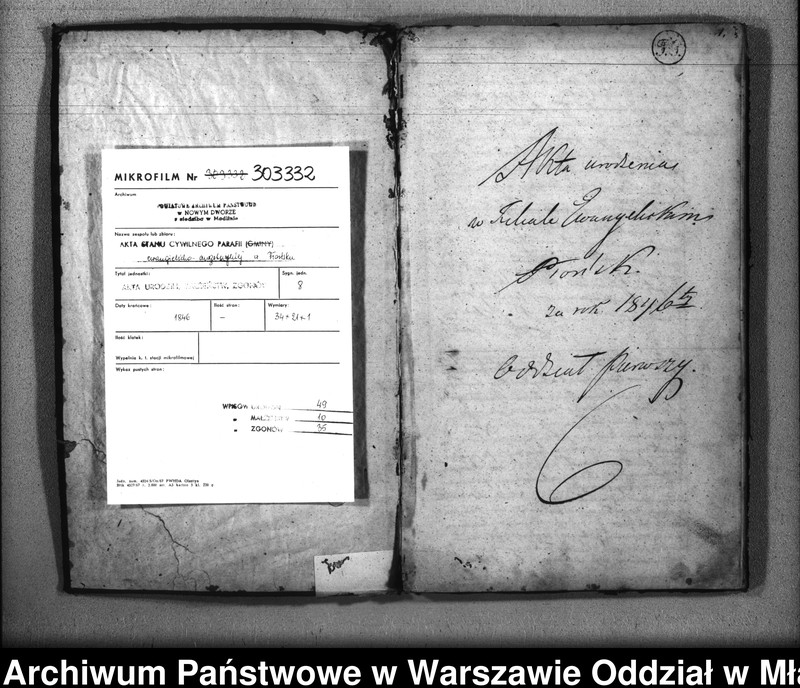 MIKROFILM Nr 303332 303332
Archiwum
POWIATOWE ARCHIWUM PAŃSTWOWE
w NOWYM DWORZE
z siedzibą w Modlinie
Nazwa zespołu lub zbioru:
AKTA STANU CYWILNEGO PARAFII (GMINY)
ewangelicko-augsburskiej w Płońsku
Tytuł jednostki:
Sygn. jedn.
AKTA URODZEŃ, MAŁŻEŃSTW, ZGONÓW
8
Daty krańcowe:
Ilość stron:
Wymiary:
1846
–
34×21×1
Ilość klatek:
Wypełnia k. t. stacji mikrofilmowej
Wykaz pustych stron:
WPISÓW URODZEŃ 49
" MAŁŻEŃSTW 10
" ZGONÓW 35
1.
Akta urodzenia
w Filiale Ewangelickim
Płońsk.
za rok 1846
Oddział pierwszy.
Archiwum Państwowe w Warszawie Oddział w Mła